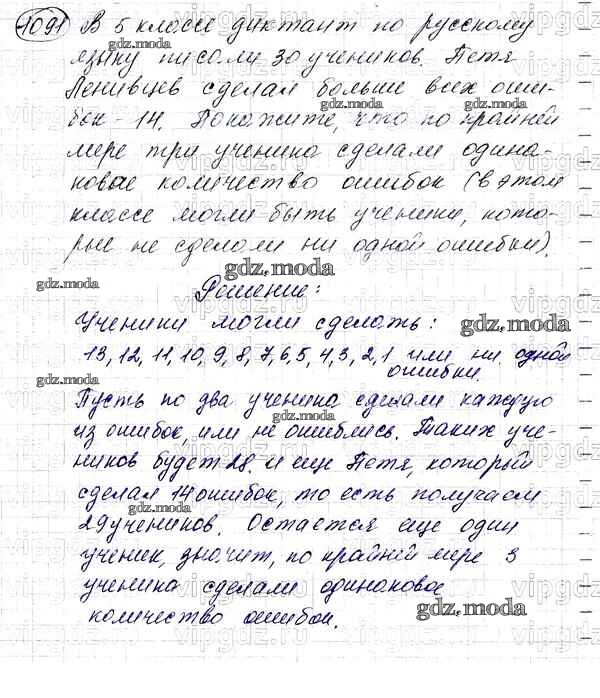 1091 В 5 классе диктант по русскому
языку писали 30 учеников. Петя
Ленивцев сделал больше всех оши-
бок - 14. Покажите, что по крайней
мере три ученика сделали одина-
ковое количество ошибок (в этом
классе могли быть ученики, кото-
рые не сделали ни одной ошибки).
Решение:
Ученики могли сделать:
13, 12, 11, 10, 9, 8, 7, 6, 5, 4, 3, 2, 1 или ни одной
ошибки.
Пусть по два ученика сделали каждую
из ошибок, или не ошиблись. Таких уче-
ников будет 28, и еще Петя, который
сделал 14 ошибок, то есть получаем
29 учеников. Остается еще один
ученик, значит, по крайней мере 3
ученика сделали одинаковое
количество ошибок.
gdz.moda
gdz.moda
gdz.moda
gdz.moda
gdz.moda
gdz.moda
gdz.moda
gdz.moda
gdz.moda
gdz.moda
gdz.moda
gdz.moda
vipgdz.ru